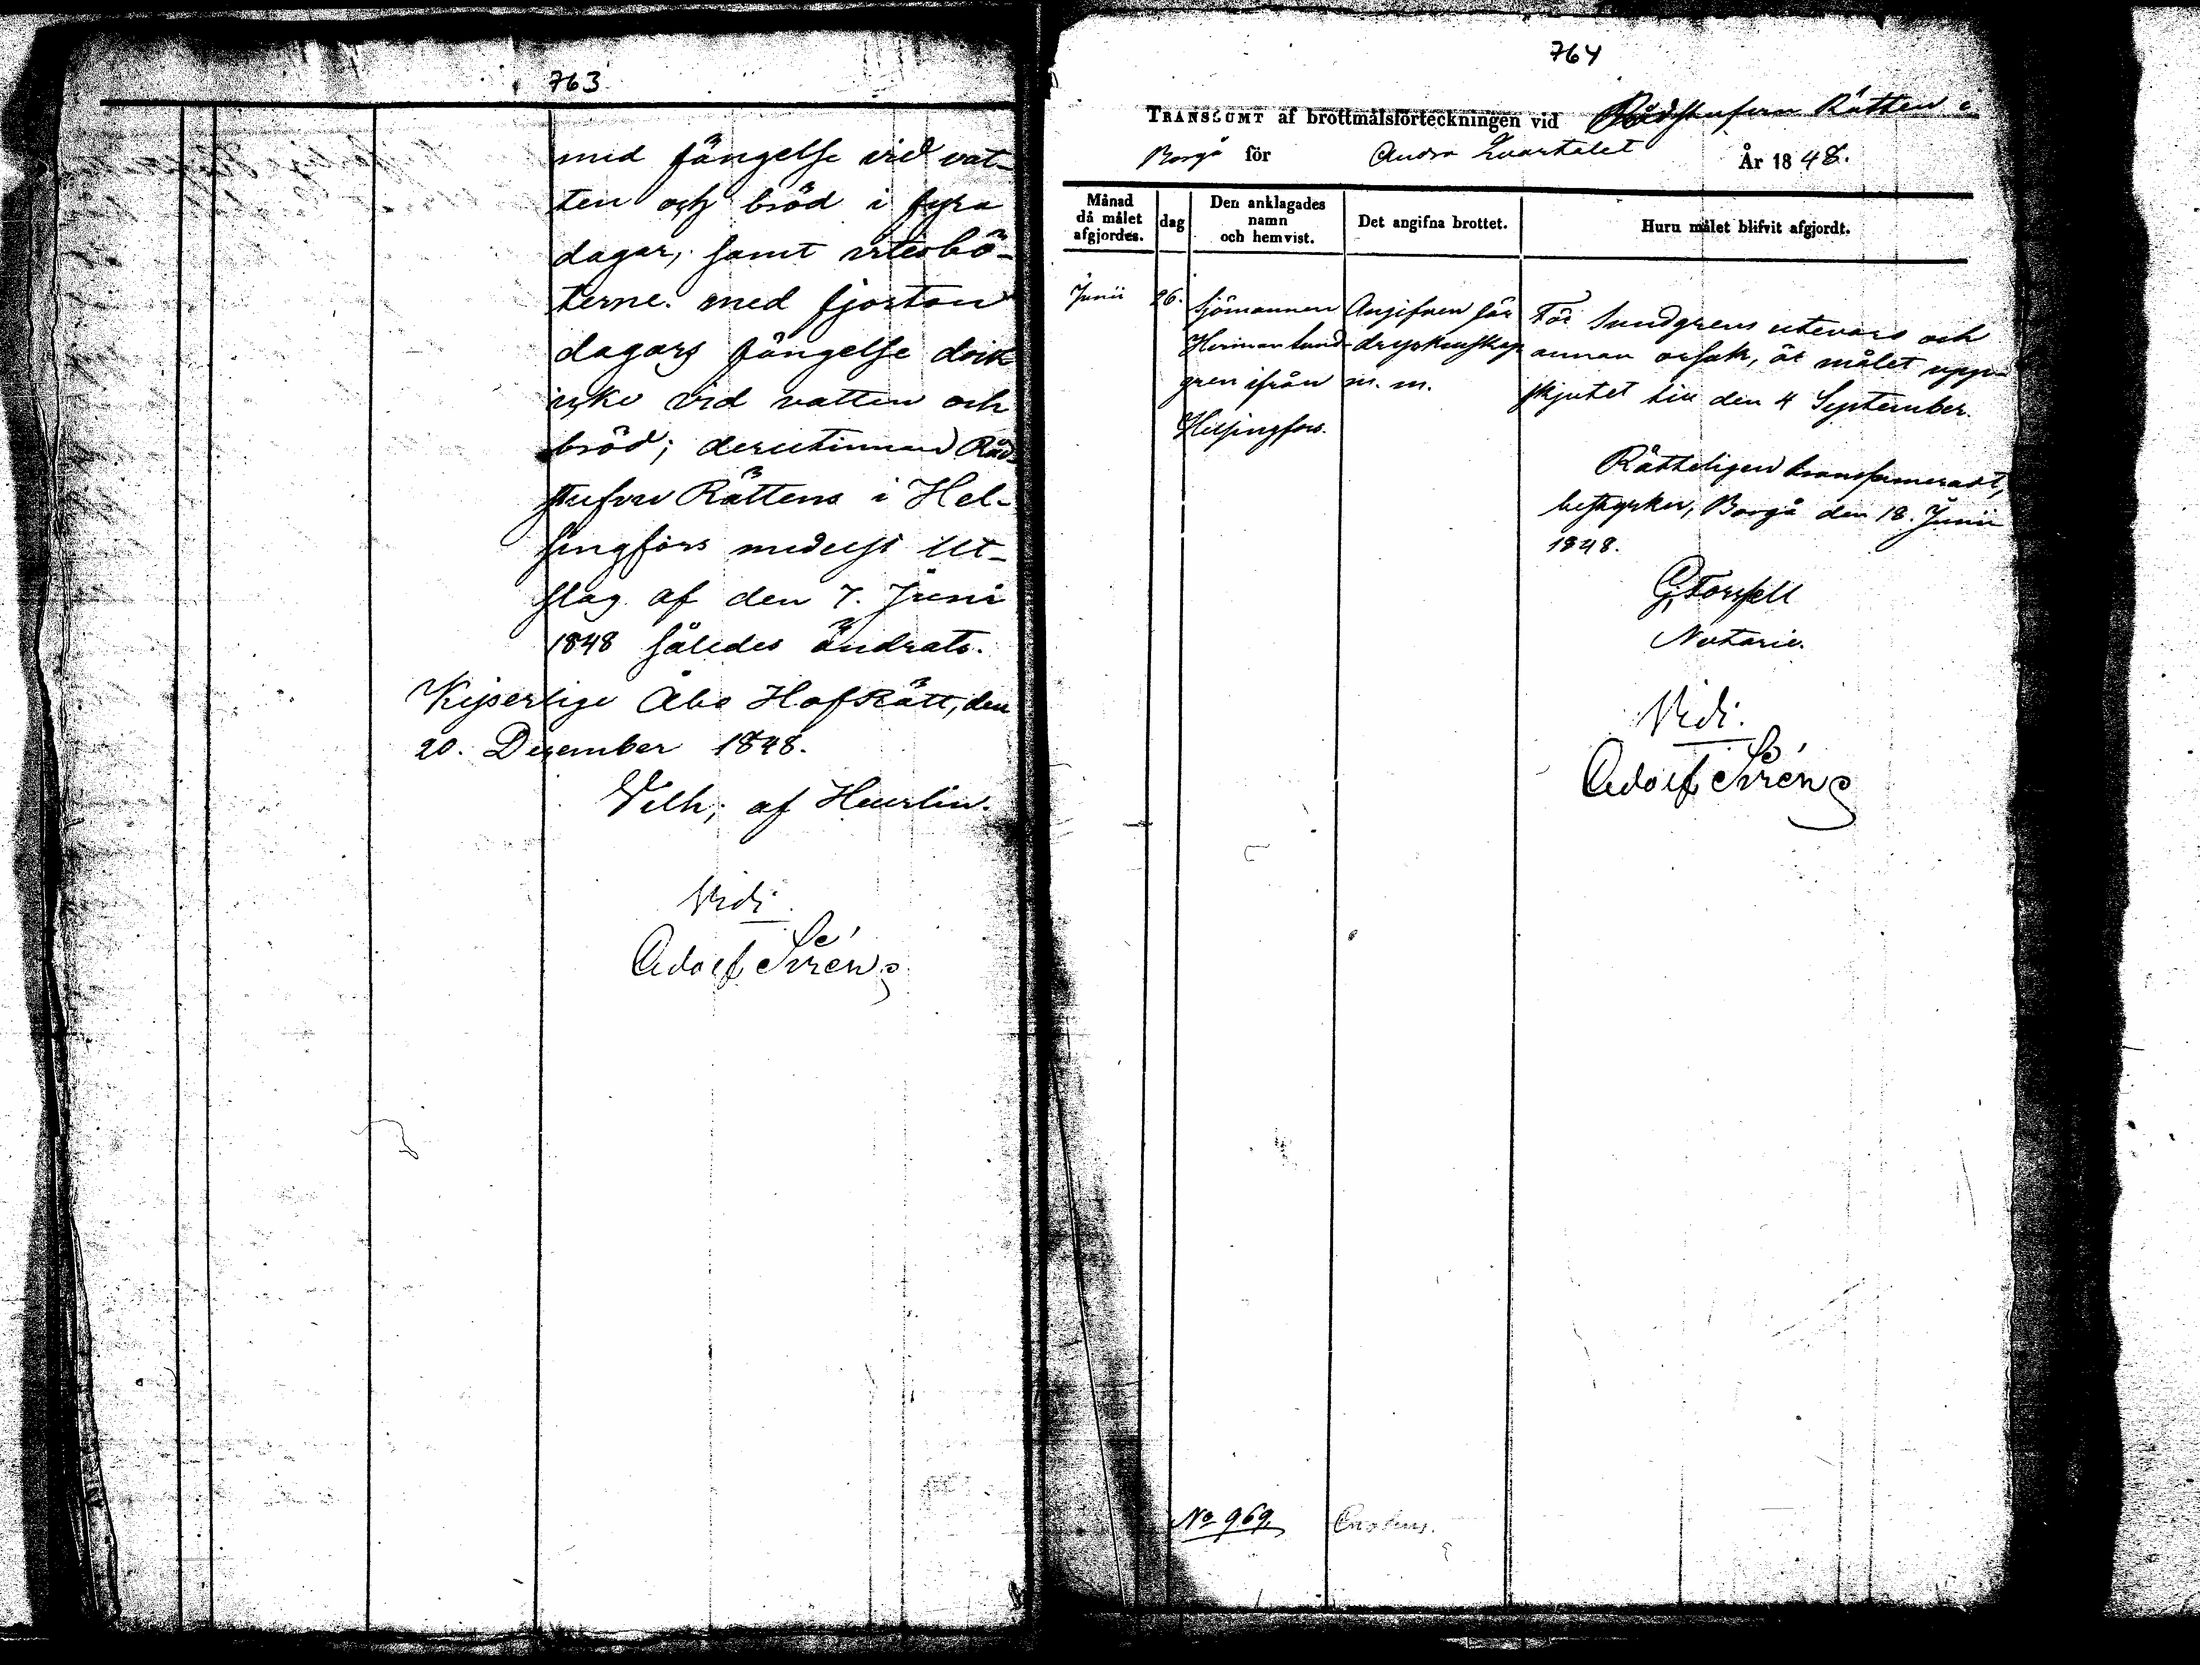 763
med fängelse vid vat-
ten och bröd i fyra
dagar, samt vitesbö-
terne. med fjorton
dagars fängelse dock
icke vid vatten och
bröd; derutinnan Råd-
stufvu Rättens i Hel-
singfors medelst Ut-
slag af den 7. Juni
1848 således ändrats.
Kejserlige Åbo HofRätt, den
20. December 1848.
Vilh; af Heurlin.
Vidi
Adolf Sirén
764
TRANSSUMT af brottmålsförteckningen vid Rådstufvu Rätten i
Borgå för Andra Quartalet År 1848.
Månad då målet afgjordes.
dag
Den anklagades namn och hemvist.
Det angifna brottet.
Huru målet blifvit afgjordt.
Junii 26.
Sjömannen
Herman Lund-
gren ifrån
Helsingfors.
Angifven för
dryckenskap
m. m.
För Lundgrens utevaro och
annan orsak, är målet upp-
skjutet till den 4 September.
Rätteligen transsumeradt,
betygker, Borgå den 18. Junii
1848.
G Forssell
Notarie.
Vidi.
Adolf Sirén
No 969.